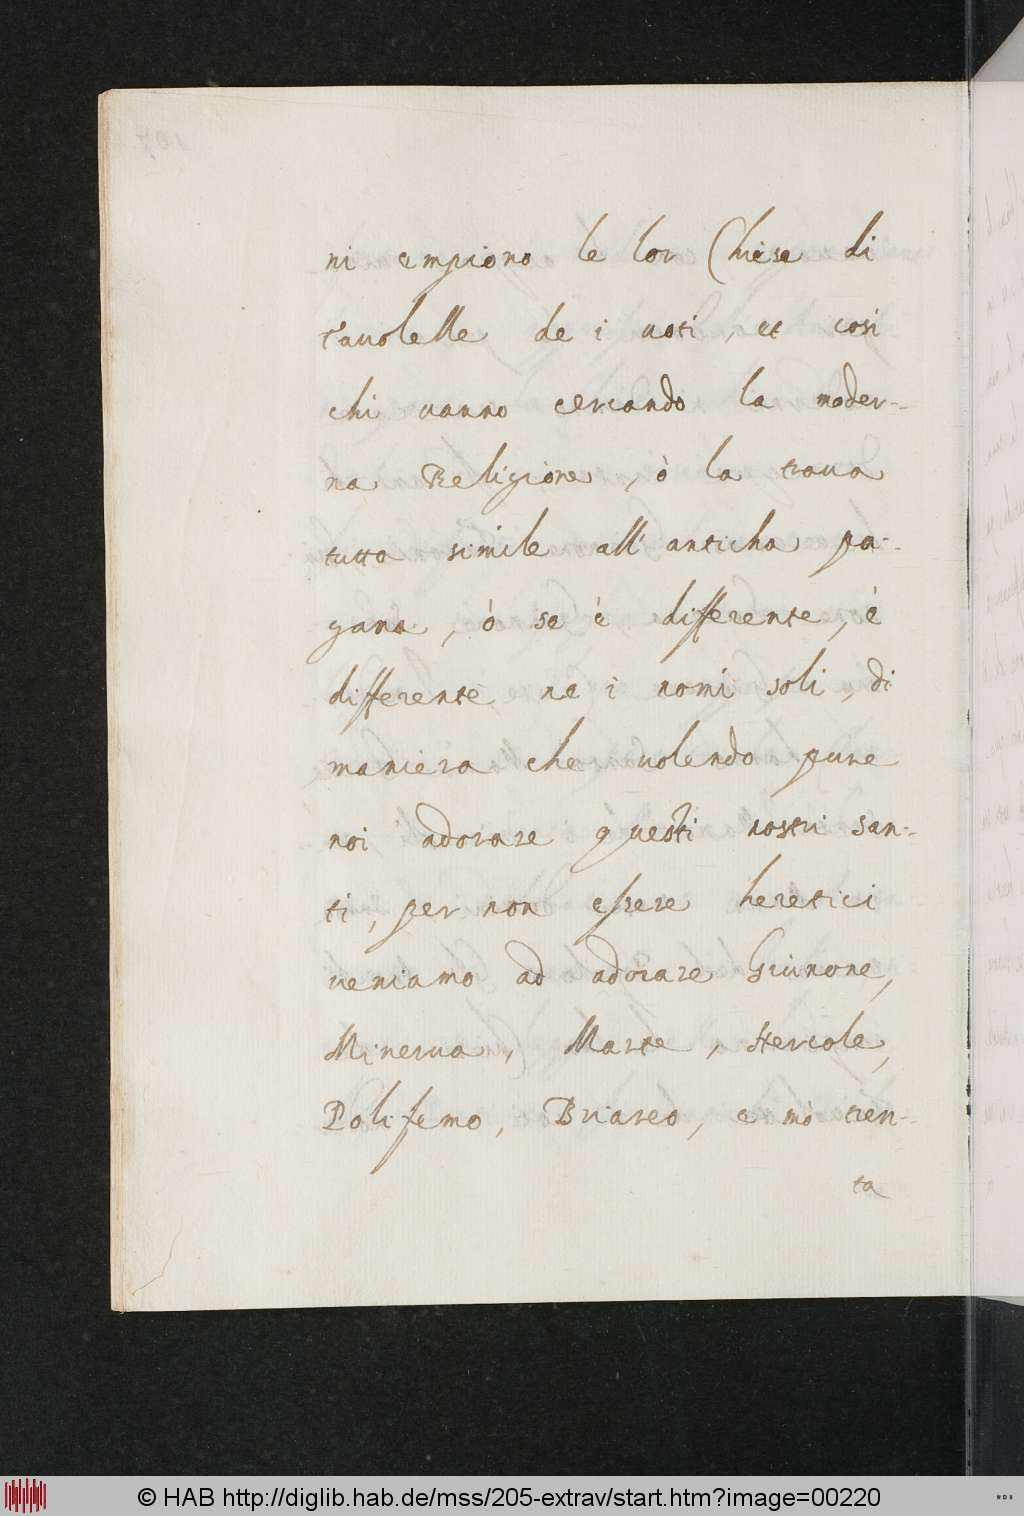 ni empiono le lor Chiese di
tauolelle de i uoti, et cosi
chi uanno cercando la moder-
na Religione, ò la troua
tutta simile all' anticha pa-
gana, ò se è differente, è
differente ne i nomi soli, di
maniera che uolendo pure
noi adorare questi nostri san-
ti, per non essere heretici
ueniamo ad adorare Giunone,
Minerua, Marte, Hercole,
Polifemo, Briareo, e mò tren-
ta
© HAB http://diglib.hab.de/mss/205-extrav/start.htm?image=00220